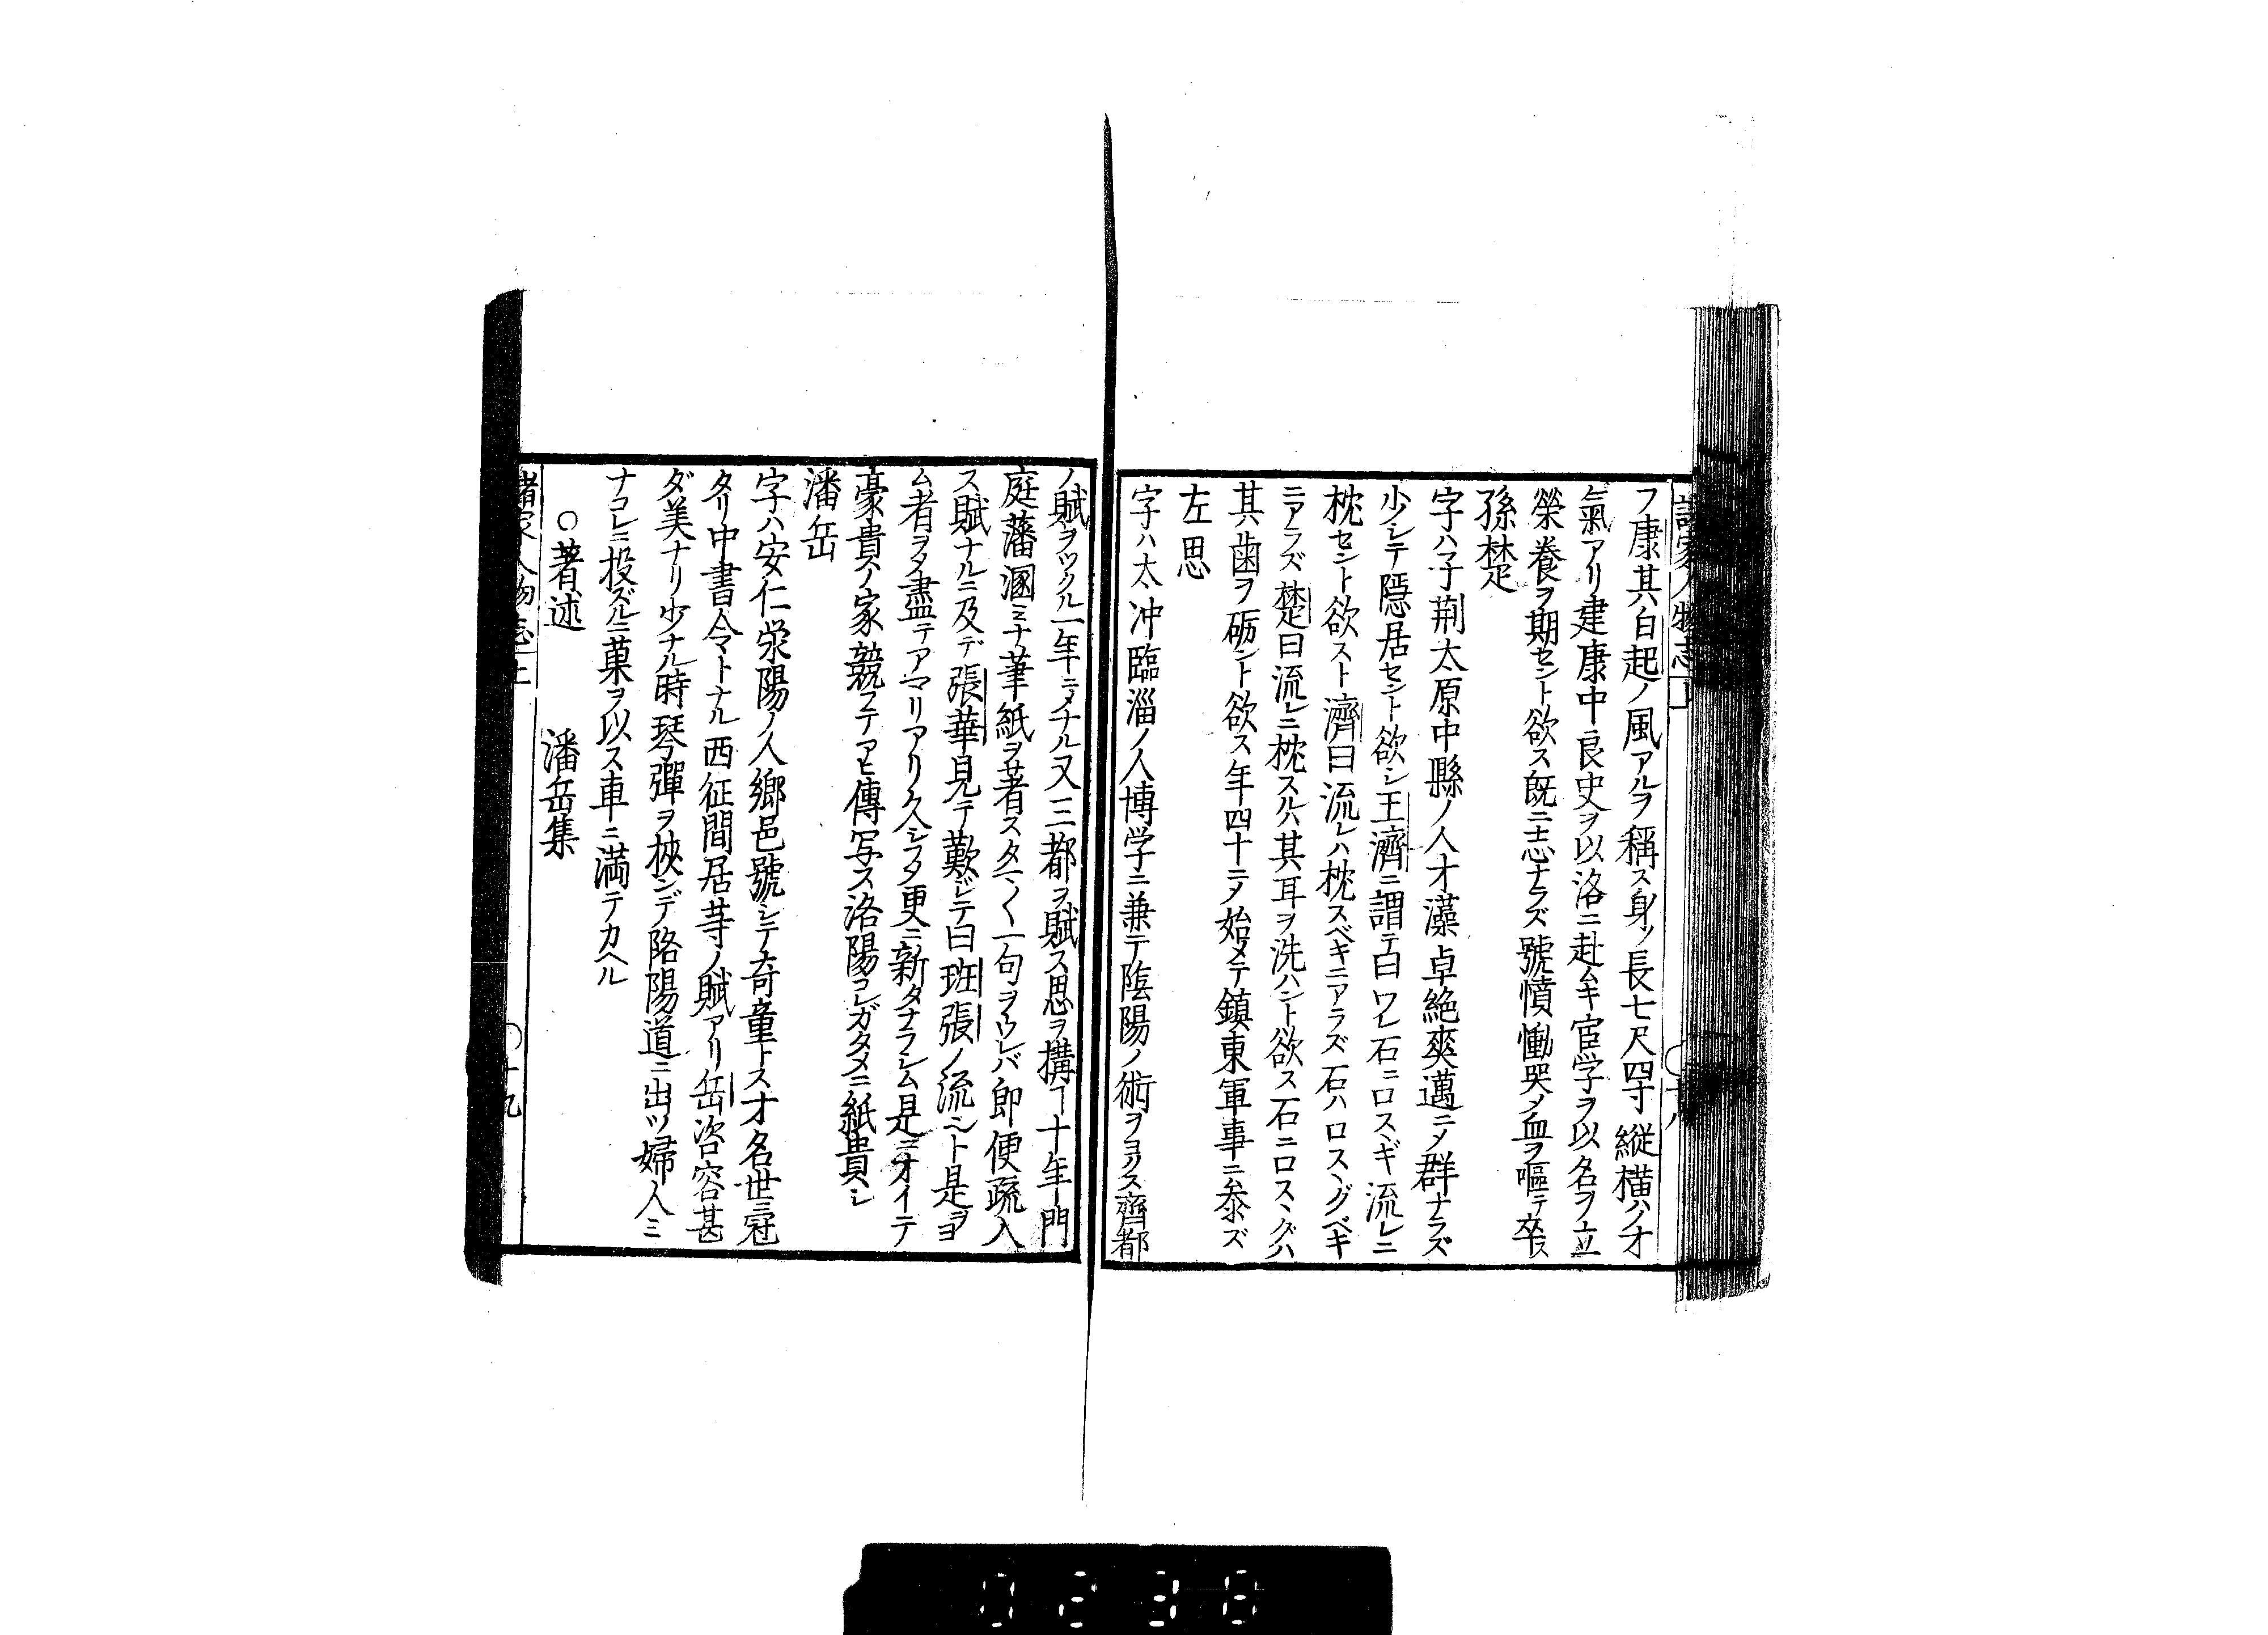 諸家人物志上
十八
フ康其白起ノ風アルヲ稱ス身ノ長七尺四寸縱横ノオ
氣アリ建康中良史ヲ以洛ニ赴ムキ宦学ヲ以名ヲ立
榮養ヲ期セント欲ス既ニ志ナラズ號憤慟哭〆血ヲ嘔テ卒ス
孫楚
字ハ子荆太原中縣ノ人才藻卓絶爽邁ニ〆群ナラズ
少シテ隱居セント欲シ王濟ニ謂テ曰ワレ石ニロスヽギ流レニ
枕セント欲スト濟曰流レハ枕スベキニアラズ石ハロスヽグベキ
ニアラズ楚曰流レニ枕スルハ其耳ヲ洗ハント欲ス石ニロスヽグハ
其歯ヲ砺ント欲ス年四十ニ〆始メテ鎮東軍事ニ叅ズ
左思
字ハ太冲臨淄ノ人博学ニ兼テ陰陽ノ術ヲヨクス齊都
ノ賦ヲツクル一年ニ〆ナル又三都ヲ賦ス思ヲ構ヿ十年門
庭藩溷ミナ筆紙ヲ著スタマ〱一句ヲウレバ即便疏入
ス賦ナルニ及デ張華見テ歎ジテ曰班張ノ流ント是ヲヨ
ム者ヲ〆盡テアマリアリ久シフ〆更ニ新タナラシム是ニオイテ
豪貴ノ家競フテアヒ傳写ス洛陽コレガタメニ紙貴シ
潘岳
字ハ安仁滎陽ノ人鄉邑號シテ奇童トス才名世ニ冠
タリ中書令マトナル西征間居䓁ノ賦アリ岳咨容甚
ダ美ナリ少ナル時琴彈ヲ挾ンデ路陽道ニ出ツ婦人ミ
ナコレニ投ズルニ菓ヲ以ス車ニ満テカヘル
○著述　潘岳集
諸家人物志上
十九
0230